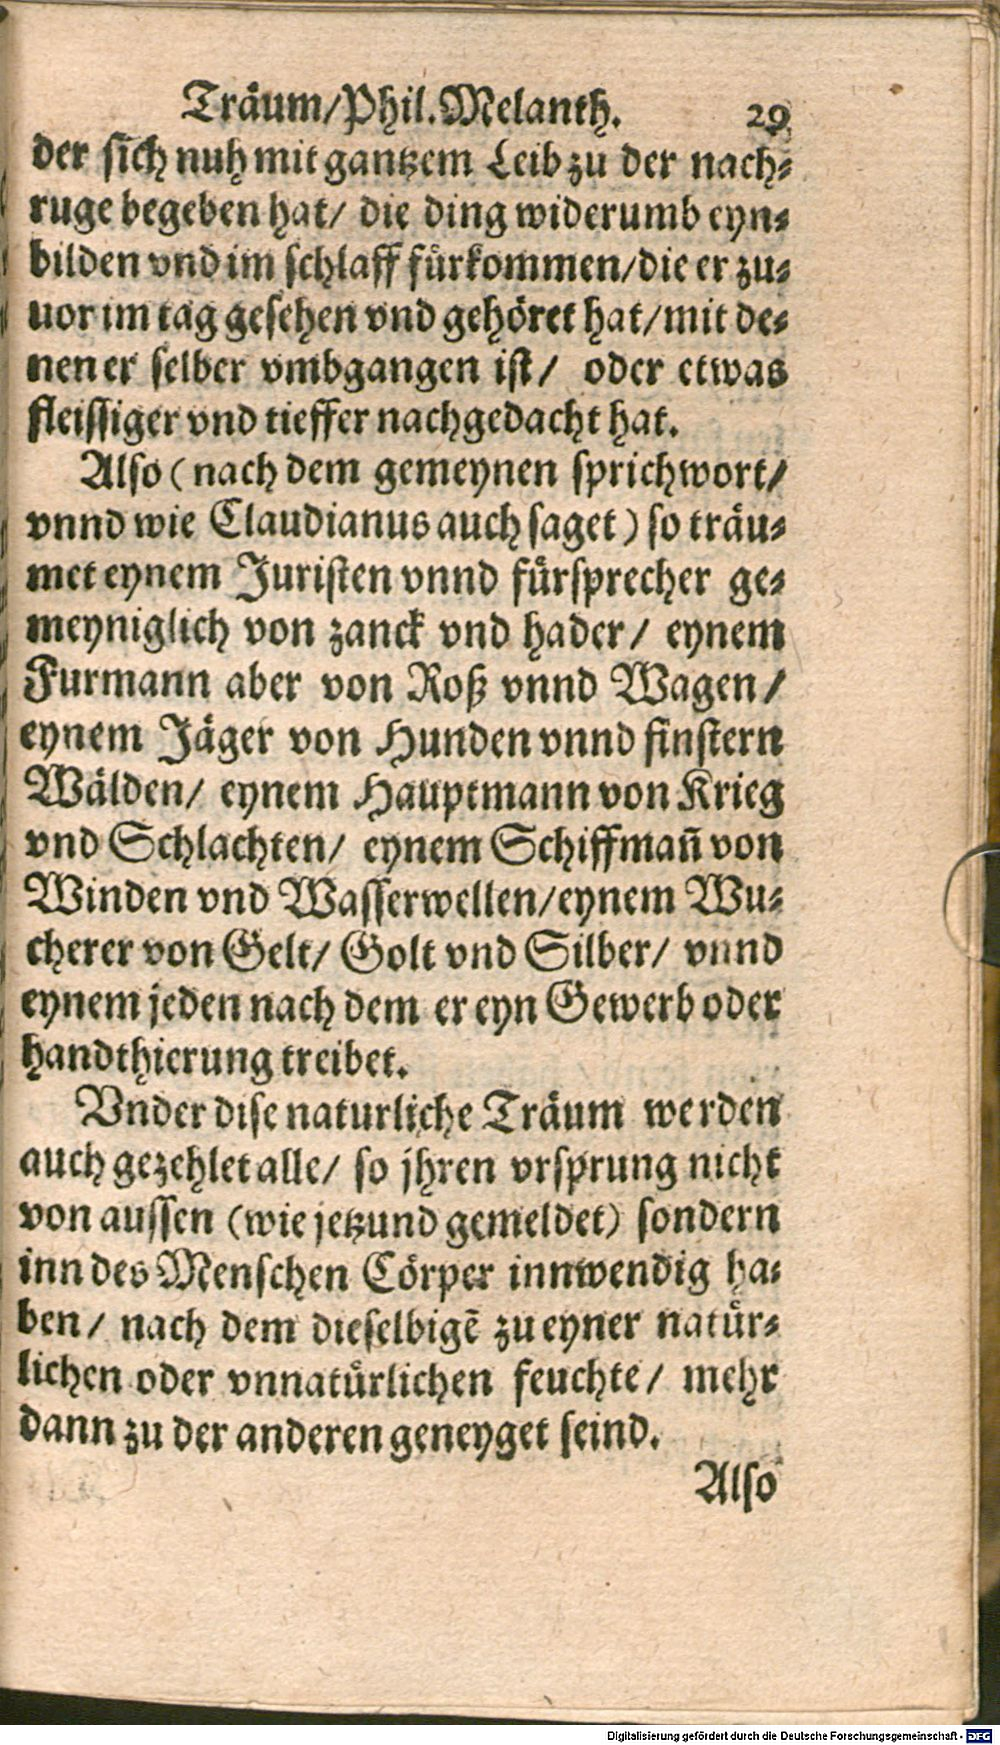 Träum/Phil. Melanth. 29
der sich nuh mit gantzem Leib zu der nach-
ruge begeben hat/ die ding widerumb eyn-
bilden vnd im schlaff fürkommen/die er zu-
uor im tag gesehen vnd gehöret hat/mit de-
nen er selber vmbgangen ist/ oder etwas
fleissiger vnd tieffer nachgedacht hat.
Also (nach dem gemeynen sprichwort/
vnnd wie Claudianus auch saget) so träu-
met eynem Juristen vnnd fürsprecher ge-
meyniglich von zanck vnd hader/ eynem
Furmann aber von Roß vnnd Wagen/
eynem Jäger von Hunden vnnd finstern
Wälden/ eynem Hauptmann von Krieg
vnd Schlachten/ eynem Schiffman̄ von
Winden vnd Wasserwellen/eynem Wu-
cherer von Gelt/ Golt vnd Silber/ vnnd
eynem jeden nach dem er eyn Gewerb oder
handthierung treibet.
Vnder dise naturliche Träum werden
auch gezehlet alle/ so jhren vrsprung nicht
von aussen (wie jetzund gemeldet) sondern
inn des Menschen Cörper innwendig ha-
ben/ nach dem dieselbigē zu eyner natür-
lichen oder vnnatürlichen feuchte/ mehr
dann zu der anderen geneyget seind.
Also
Digitalisierung gefördert durch die Deutsche Forschungsgemeinschaft - DFG